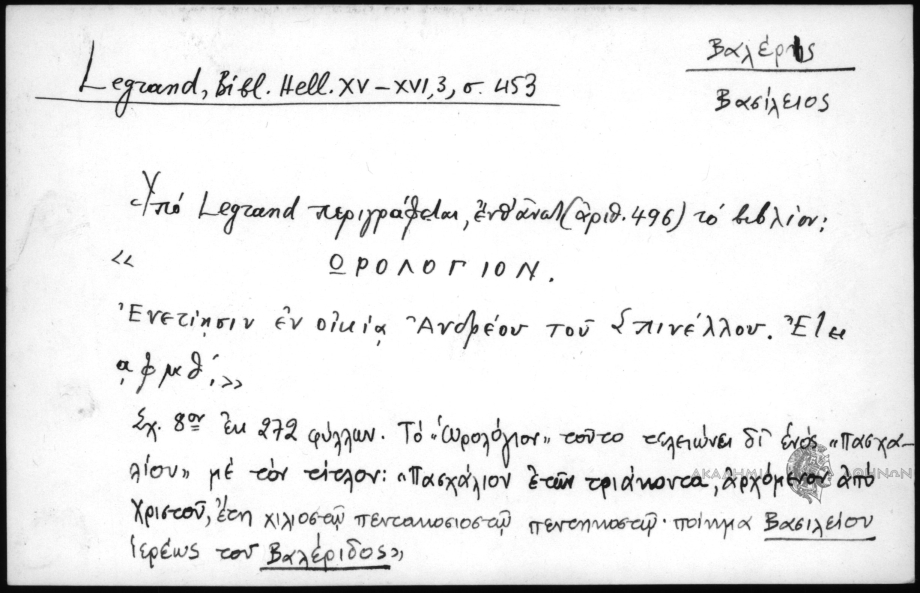 Βαλέρης
Legrand, Bibl. Hell. XV–XVI,3, σ. 453
Βασίλειος
Ὑπό Legrand περιγράφεται, ἐνθ' ἀνωτ. (ἀριθ. 496) τό βιβλίον:
«ΩΡΟΛΟΓΙΟΝ.
Ἐνετίησιν ἐν οἰκίᾳ Ἀνδρέου τοῦ Σπινέλλου. Ἔτει
αφμθ΄.»
Σχ. 8ον ἐκ 272 φύλλων. Τό «Ὡρολόγιον» τοῦτο τελειώνει δι' ἑνός «Πασχα-
λίου» μέ τόν τίτλον: «Πασχάλιον ἐτῶν τριάκοντα, ἀρχόμενον ἀπό
Χριστοῦ, ἔτη χιλιοστῷ πεντακοσιοστῷ πεντηκοστῷ· ποίημα Βασιλείου
ἱερέως τοῦ Βαλέριδος»
ΑΚΑΔΗΜΙΑ ΑΘΗΝΩΝ